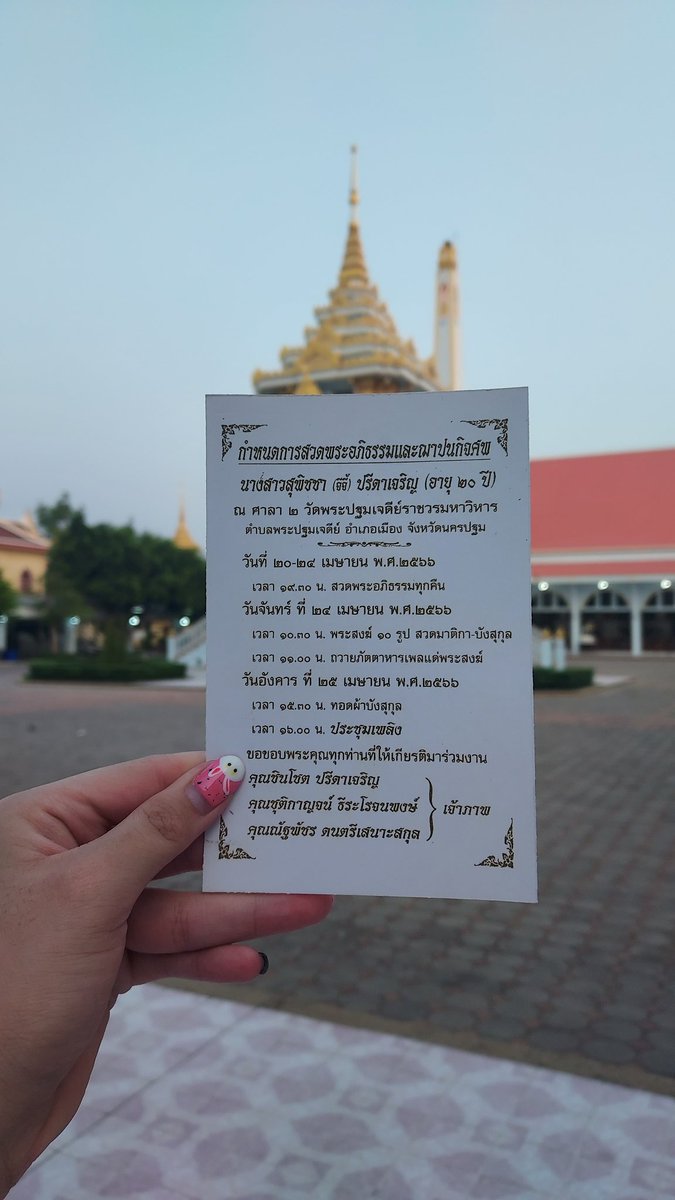 กำหนดการสวดพระอภิธรรมและฌาปนกิจศพ
นางสาวสุพิชชา (ชิชิ) ปรีดาเจริญ (อายุ ๒๐ ปี)
ณ ศาลา ๒ วัดพระปฐมเจดีย์ราชวรมหาวิหาร
ตำบลพระปฐมเจดีย์ อำเภอเมือง จังหวัดนครปฐม
วันที่ ๒๐-๒๔ เมษายน พ.ศ.๒๕๖๖
เวลา ๑๙.๓๐ น. สวดพระอภิธรรมทุกคืน
วันจันทร์ ที่ ๒๔ เมษายน พ.ศ.๒๕๖๖
เวลา ๑๐.๓๐ น. พระสงฆ์ ๑๐ รูป สวดมาติกา-บังสุกุล
เวลา ๑๑.๐๐ น. ถวายภัตตาหารเพลแด่พระสงฆ์
วันอังคาร ที่ ๒๕ เมษายน พ.ศ.๒๕๖๖
เวลา ๑๕.๓๐ น. ทอดผ้าบังสุกุล
เวลา ๑๖.๐๐ น. ประชุมเพลิง
ขอขอบพระคุณทุกท่านที่ให้เกียรติมาร่วมงาน
คุณชินโชต ปรีดาเจริญ
คุณชุติกาญจน์ ธีระโรจนพงษ์ เจ้าภาพ
คุณณัฐพัชร ดนตรีเสนาะสกุล